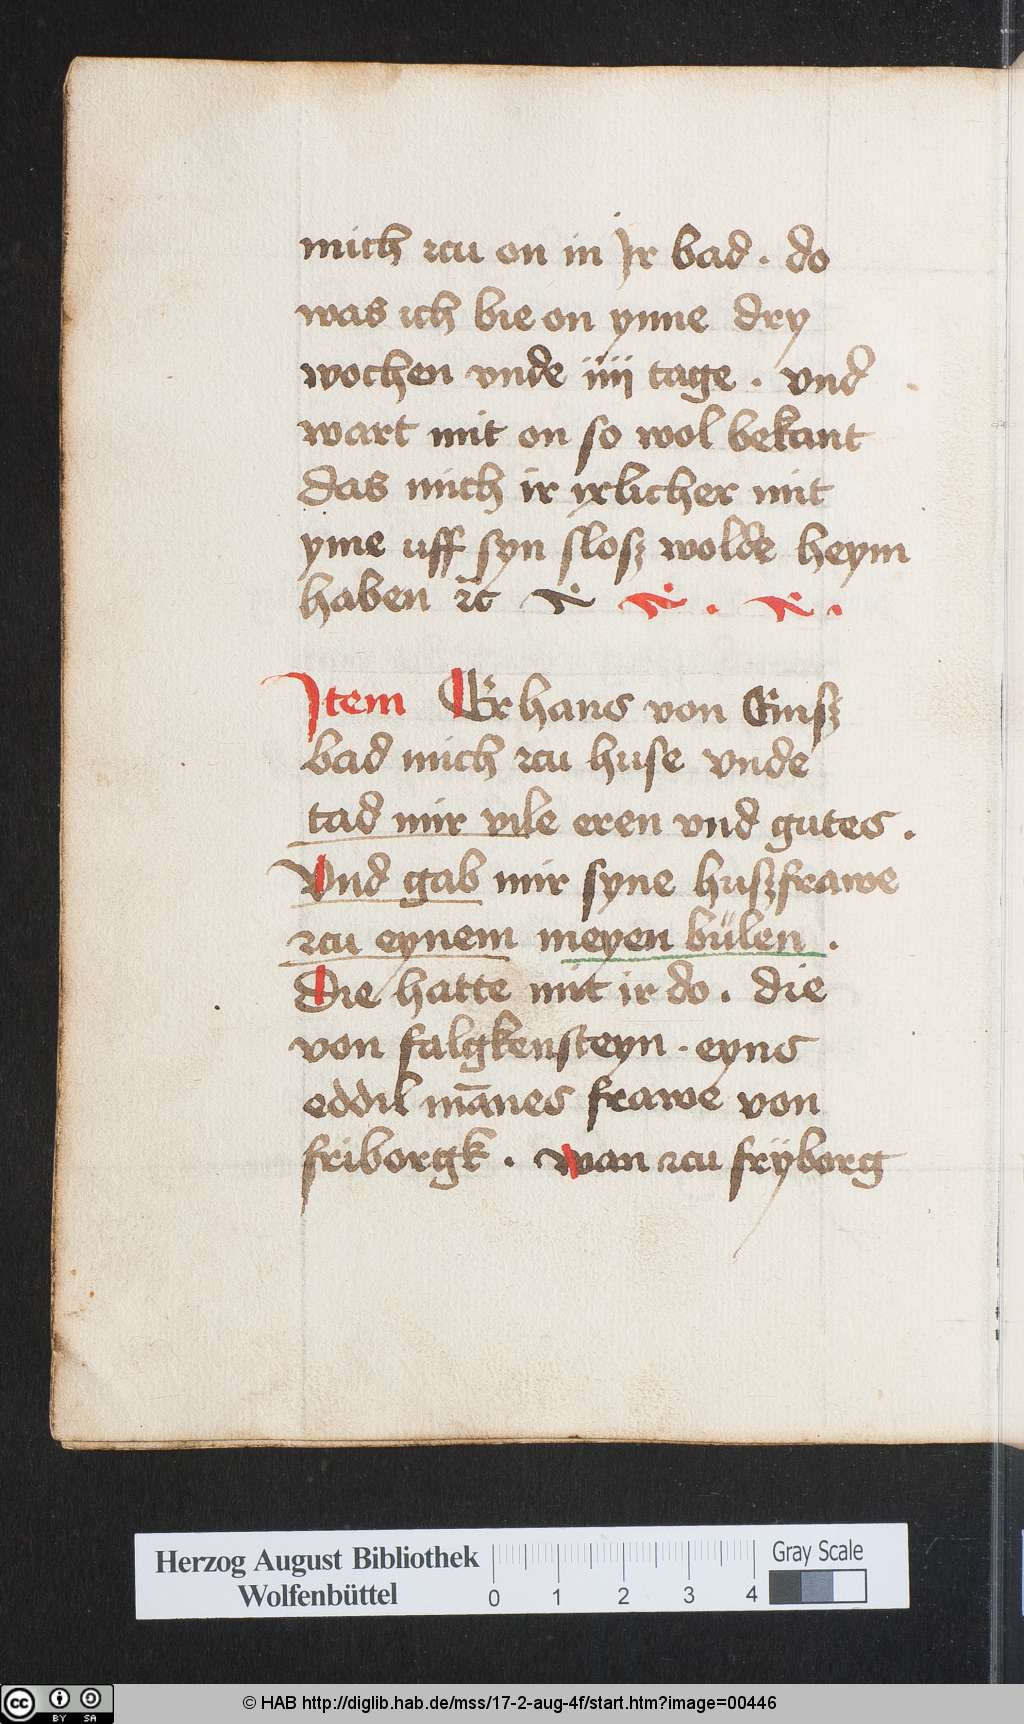 mich zcu on in Jr bad . do
was ich bie on ynne dry
wochen vnde iiij tage . vnd
wart mit on so wol bekant
das mich ir yrlicher mit
yme uff syn slosz wolde heym
haben zc
Jtem Er hans von Emsz
bad mich zcu huse vnde
tad mir vile eren vnd gutes .
Vnd gab mir syne huszfrawe
zcu eynem meyen bülen .
Die hatte mit ir do . die
von falgkensteyn . eyns
eddil mānes frawe von
friborgk . wan zcu frÿborg
Herzog August Bibliothek
Wolfenbüttel
0 1 2 3 4
Gray Scale
cc BY SA
© HAB http://diglib.hab.de/mss/17-2-aug-4f/start.htm?image=00446